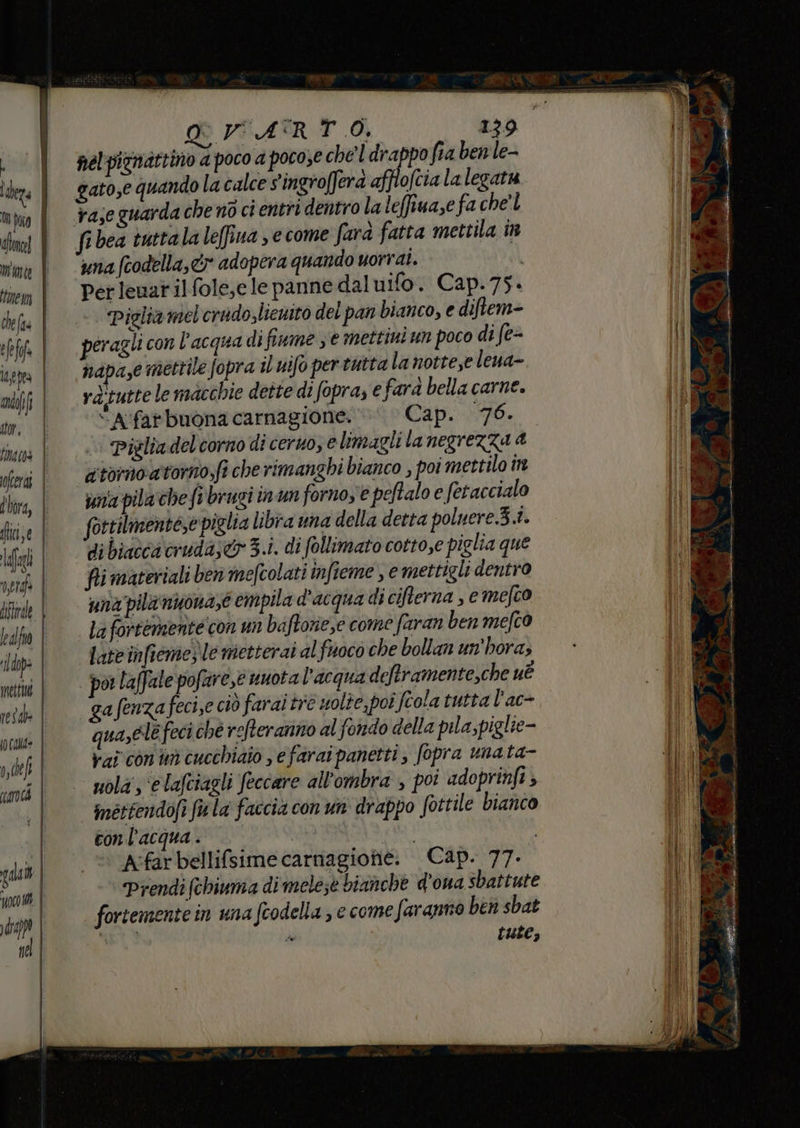 QVARTO. 139
nel pignattino a poco a poco, e che'l drappo sia ben le-
gato, e quando la calce s'ingrosserà affloscia la legatu
ra, e guarda che nõ ci entri dentro la lessiua, e fa che'l
si bea tutta la lessiua, e come sarà fatta mettila in
una scodella, & adopera quando uorrai.
Per leuar il sole, e le panne dal uiso. Cap. 75.
Piglia mel crudo, lieuito del pan bianco, e distem-
peragli con l'acqua di fiume, e mettiui un poco di se-
napa, e mettile sopra il uiso per tutta la notte, e leua-
rà tutte le macchie dette di sopra, e farà bella carne.
A far buona carnagione. Cap. 76.
Piglia del corno di ceruo, e limagli la negrezza a
atorno atorno, si che rimanghi bianco, poi mettilo in
una pila che si brugi in un forno, e pestalo e setaccialo
sottilmente, e piglia libra una della detta poluere. ℥.i.
di biacca cruda, & ℥.i. di sollimato cotto, e piglia que
sti materiali ben mescolati insieme, e mettigli dentro
una pila nuoua, e empila d'acqua di cisterna, e mesco
la fortemente con un bastone, e come saran ben mesco
late insieme, le metterai al fuoco che bollan un'hora,
poi lassale posare, e uuota l'acqua destramente, che uẽ
ga senza feci, e ciò farai tre uolte, poi scola tutta l'ac-
qua, e le feci che resteranno al fondo della pila, piglie-
rai con un cucchiaio, e farai panetti, sopra una ta-
uola, e lasciagli seccare all'ombra, poi adoprinsi,
mettendosi su la faccia con un drappo sottile bianco
con l'acqua.
A far bellissime carnagione. Cap. 77.
Prendi schiuma di mele, e bianche d'oua sbattute
fortemente in una scodella, e come saranno ben sbat
tute,